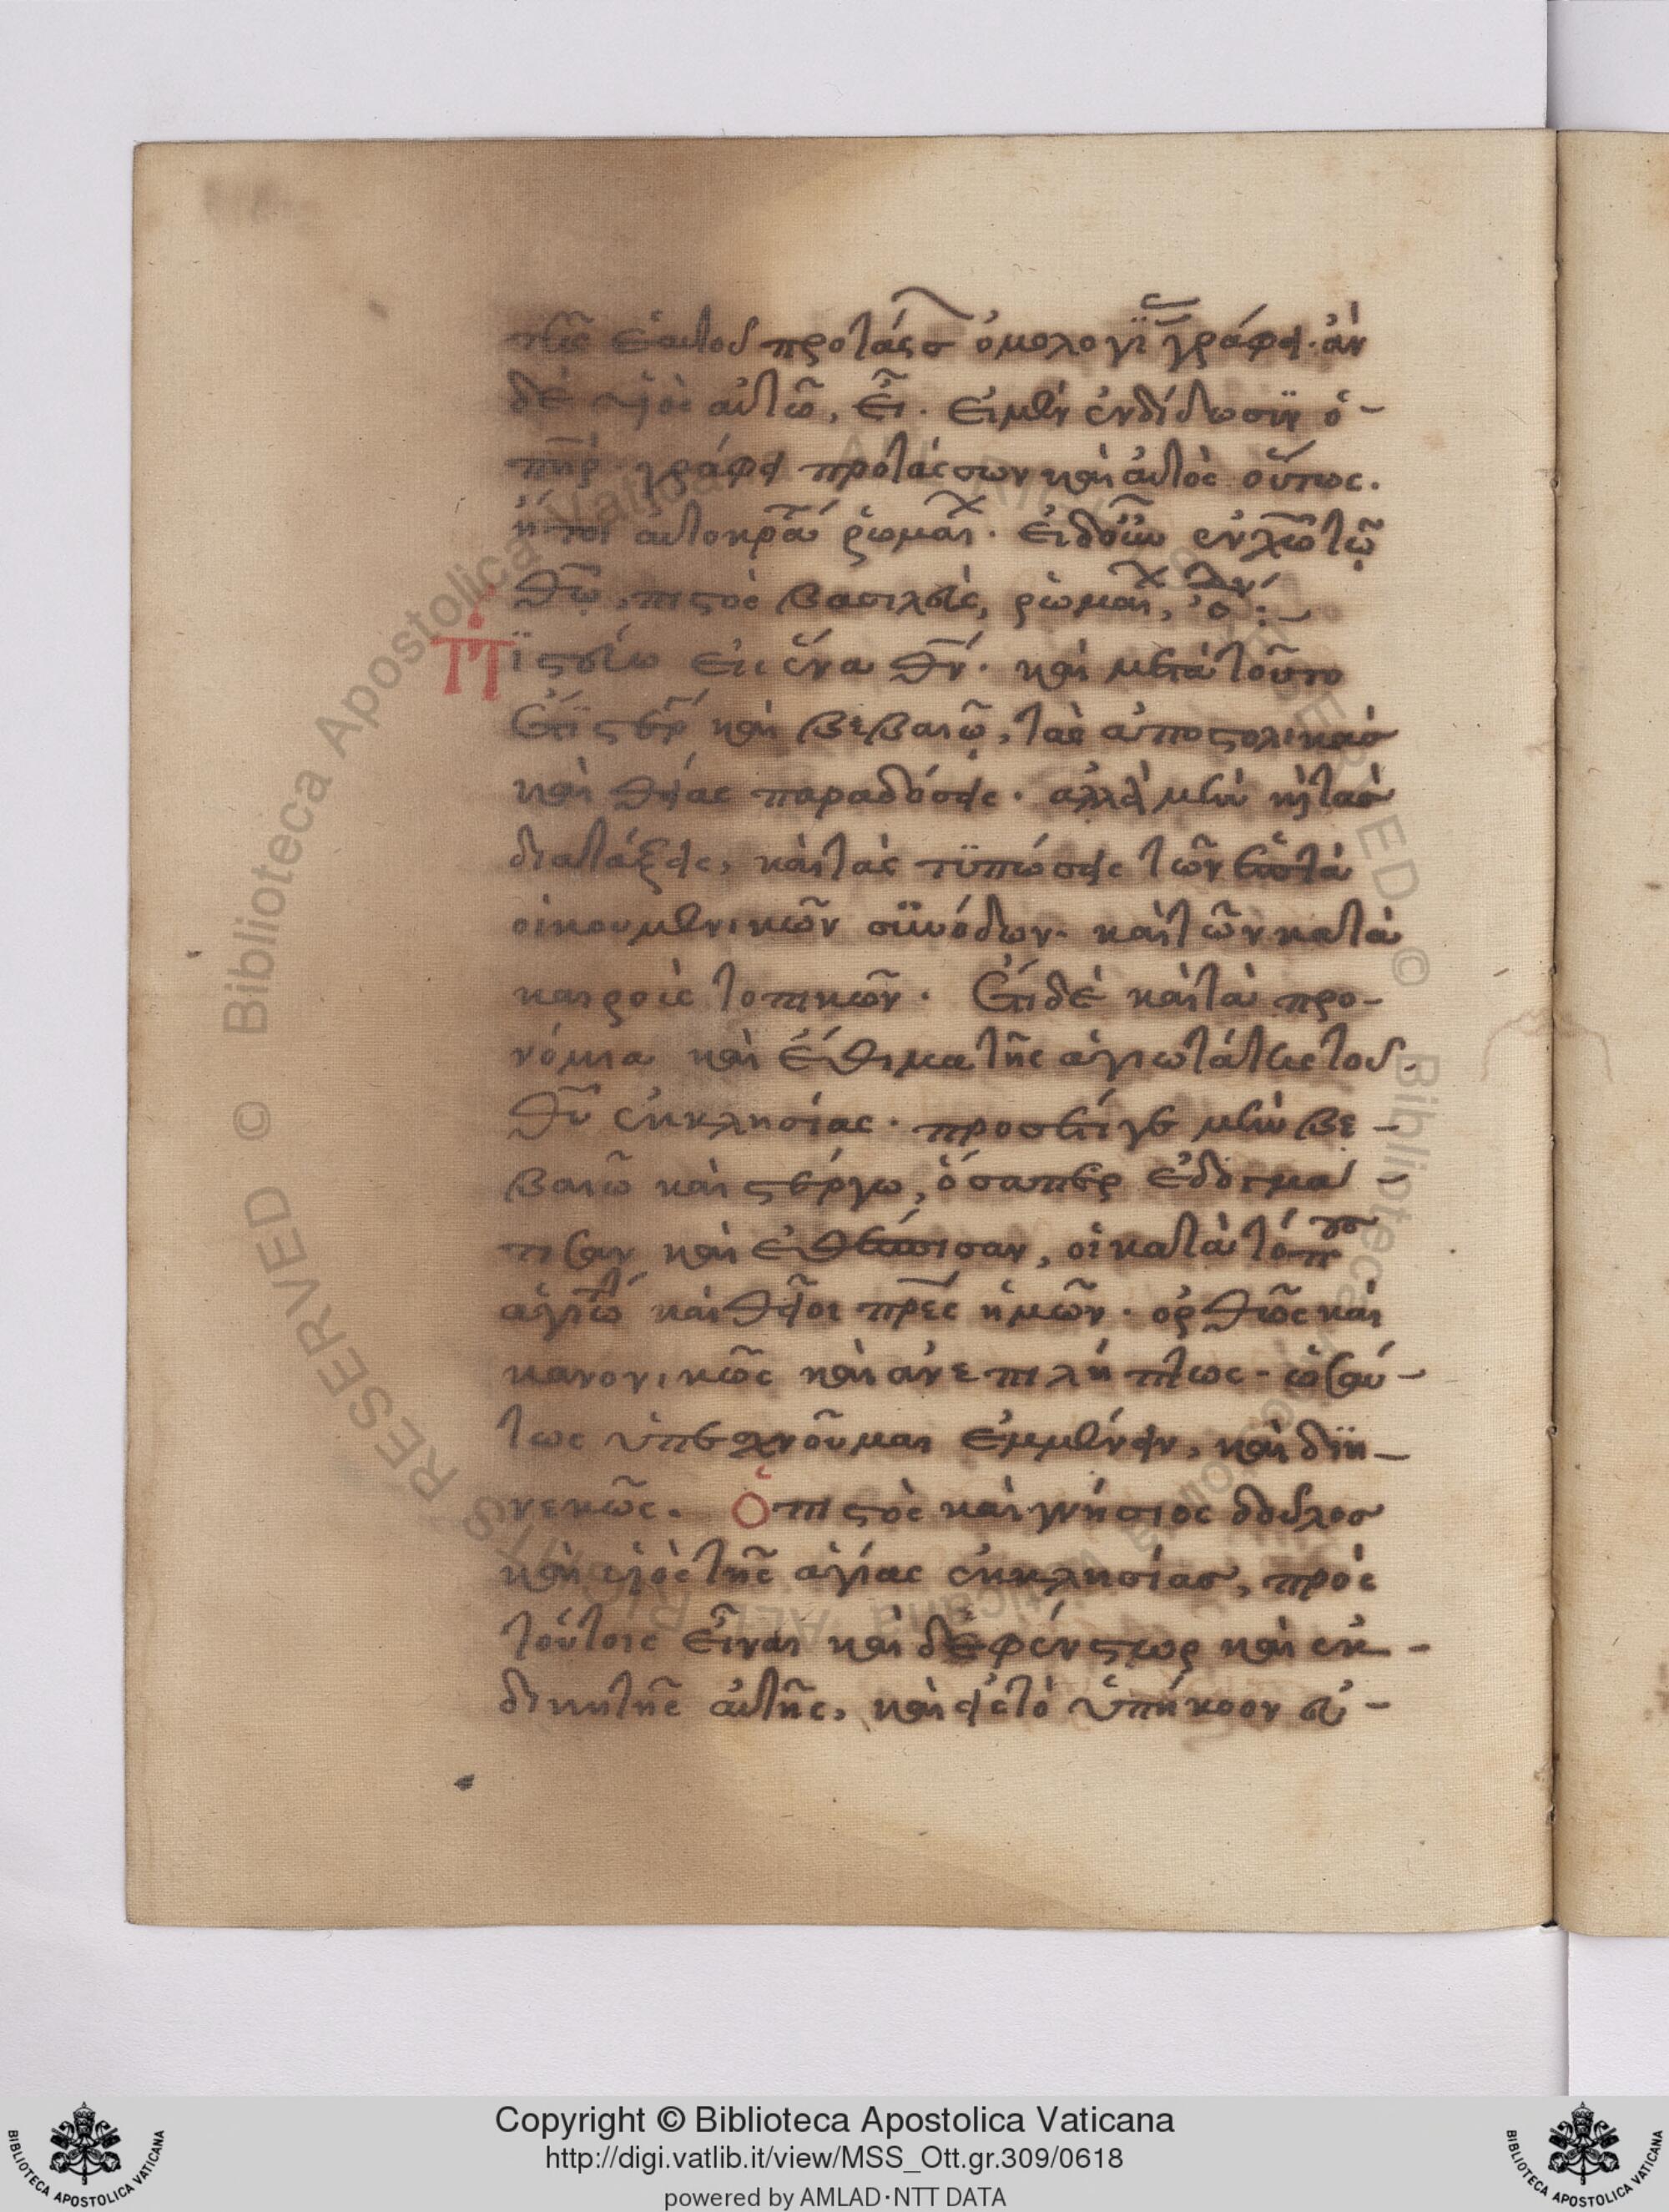 τῆς ἑαυτοῦ προτάσσ ὁμολογί γράφει. ἂν
δὲ υἱὸς αὐτῶ, ἔι. εἰ μὲν ἐνδίδωσιν ὁ-
πηρ γράφει προτάσσων καὶ αὐτὸς οὕτως.
αυτοκρα ῥωμαι. ἐν χω τῶ
θω, πιστὸς βασιλεὺς, ῥωμαι,
Πϊστεύω εἰς ἕνα θν. καὶ μετὰ τοῦτο
καὶ βεβαιῶ, τὰς ἀποστολικὰσ
καὶ θείας παραδόσεις. ἀλλὰ μὴν κỳ τὰσ
διατάξεις, καὶ τὰς τϋπώσεις τῶν ἑπτὰ
οἰκουμενικῶν συνόδων. καὶ τῶν κατὰ
καιροὺς τοπικῶν. ἔτι δὲ καὶ τὰ προ-
νόμια καὶ ἔθιμα τῆς ἁγιωτάτης τοῦ
θυ ἐκκλησίας. προσέτι γε μὴν βε-
βαιῶ καὶ στέργω, ὅσαπερ ἐδογμά-
τισαν καὶ ἐθέσπισαν, οἱ κατὰ τόπ
ἁγιώ καὶ θεῖοι πρες ἡμῶν. ὀρθῶς καὶ
κανονικῶς καὶ ἀνεπιλήπτως. ὡσαύ-
τως ὑπισχνοῦμαι ἐμμένειν, καὶ διη-
νεκῶς. Ὁ πιστὸς καὶ γνήσιος δοῦλοσ
καὶ υἱὸς τῆς ἁγίας ἐκκλησίασ, πρὸς
τούτοις εἶναι καὶ δεφένστωρ καὶ ἐκ-
δικητὴς αὐτῆς, καὶ εἰς τὸ ὑπήκοον εὐ-
Copyright © Biblioteca Apostolica Vaticana
http://digi.vatlib.it/view/MSS_Ott.gr.309/0618
powered by AMLAD·NTT DATA
BIBLIOTECA APOSTOLICA VATICANA
BIBLIOTECA APOSTOLICA VATICANA